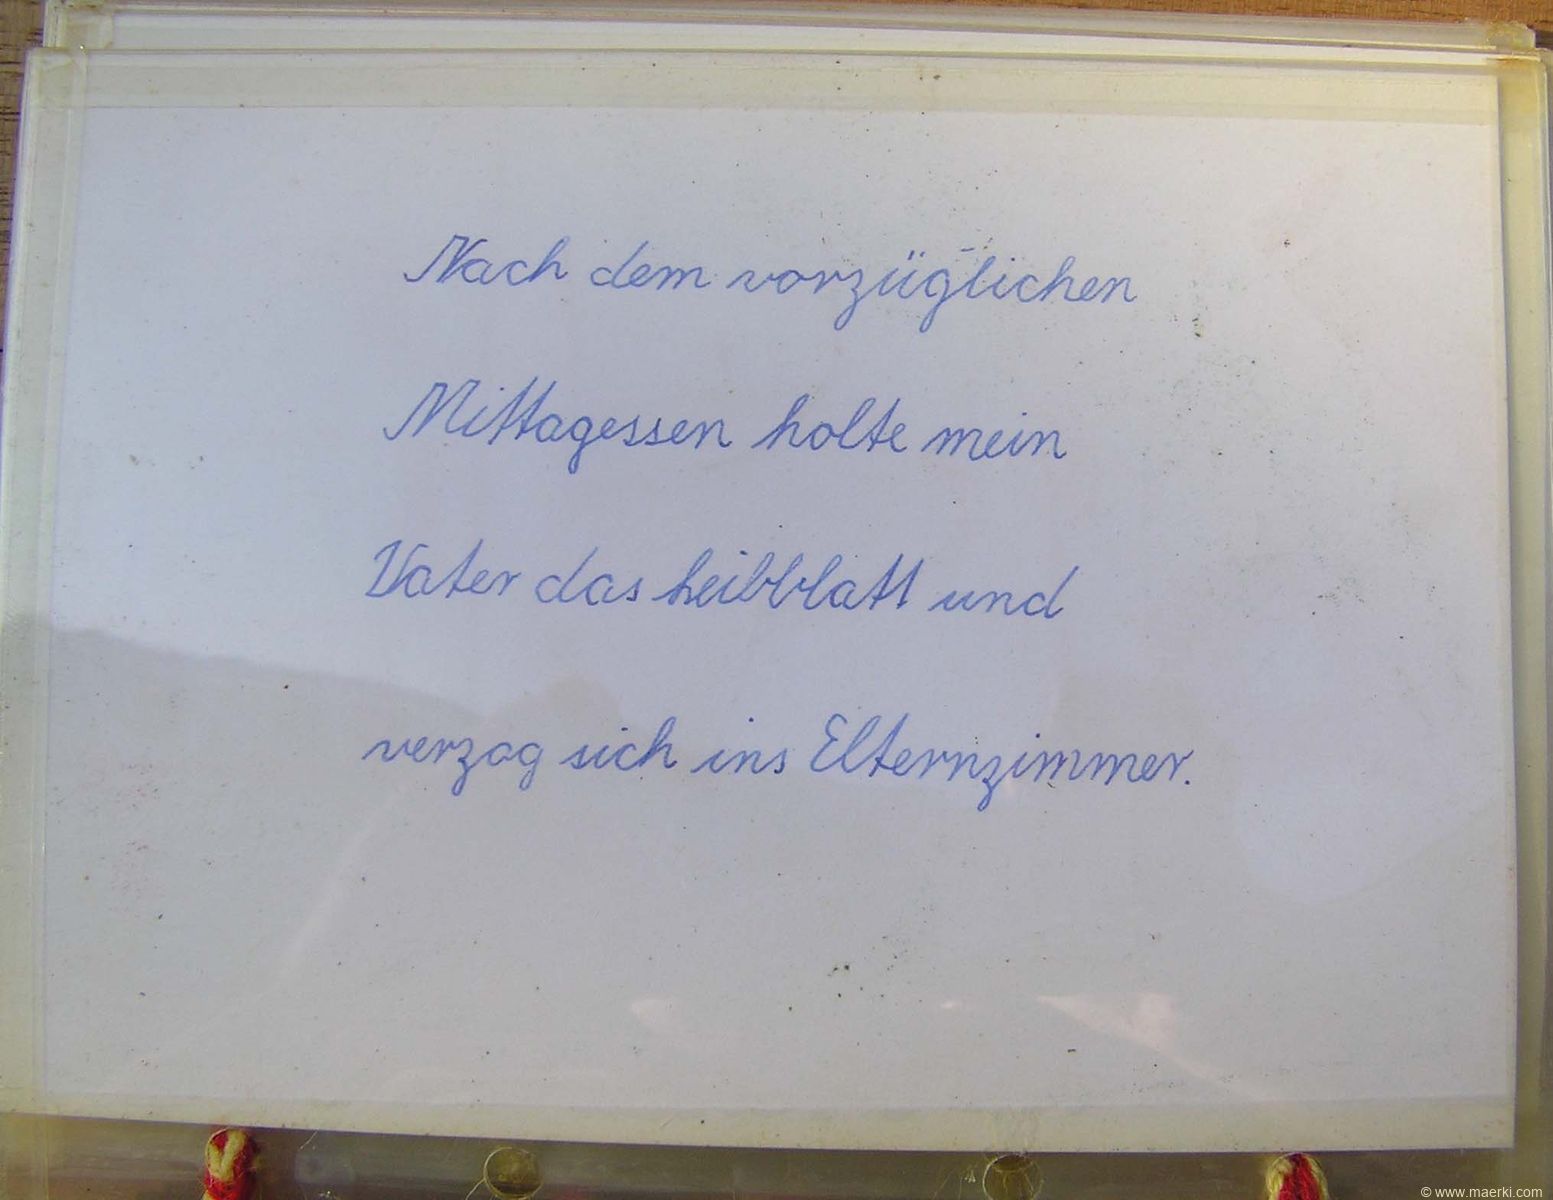 Nach dem vorzüglichen
Mittagessen holte mein
Vater das heibblatt und
verzog sich ins Elternzimmer.
© www.maerki.com